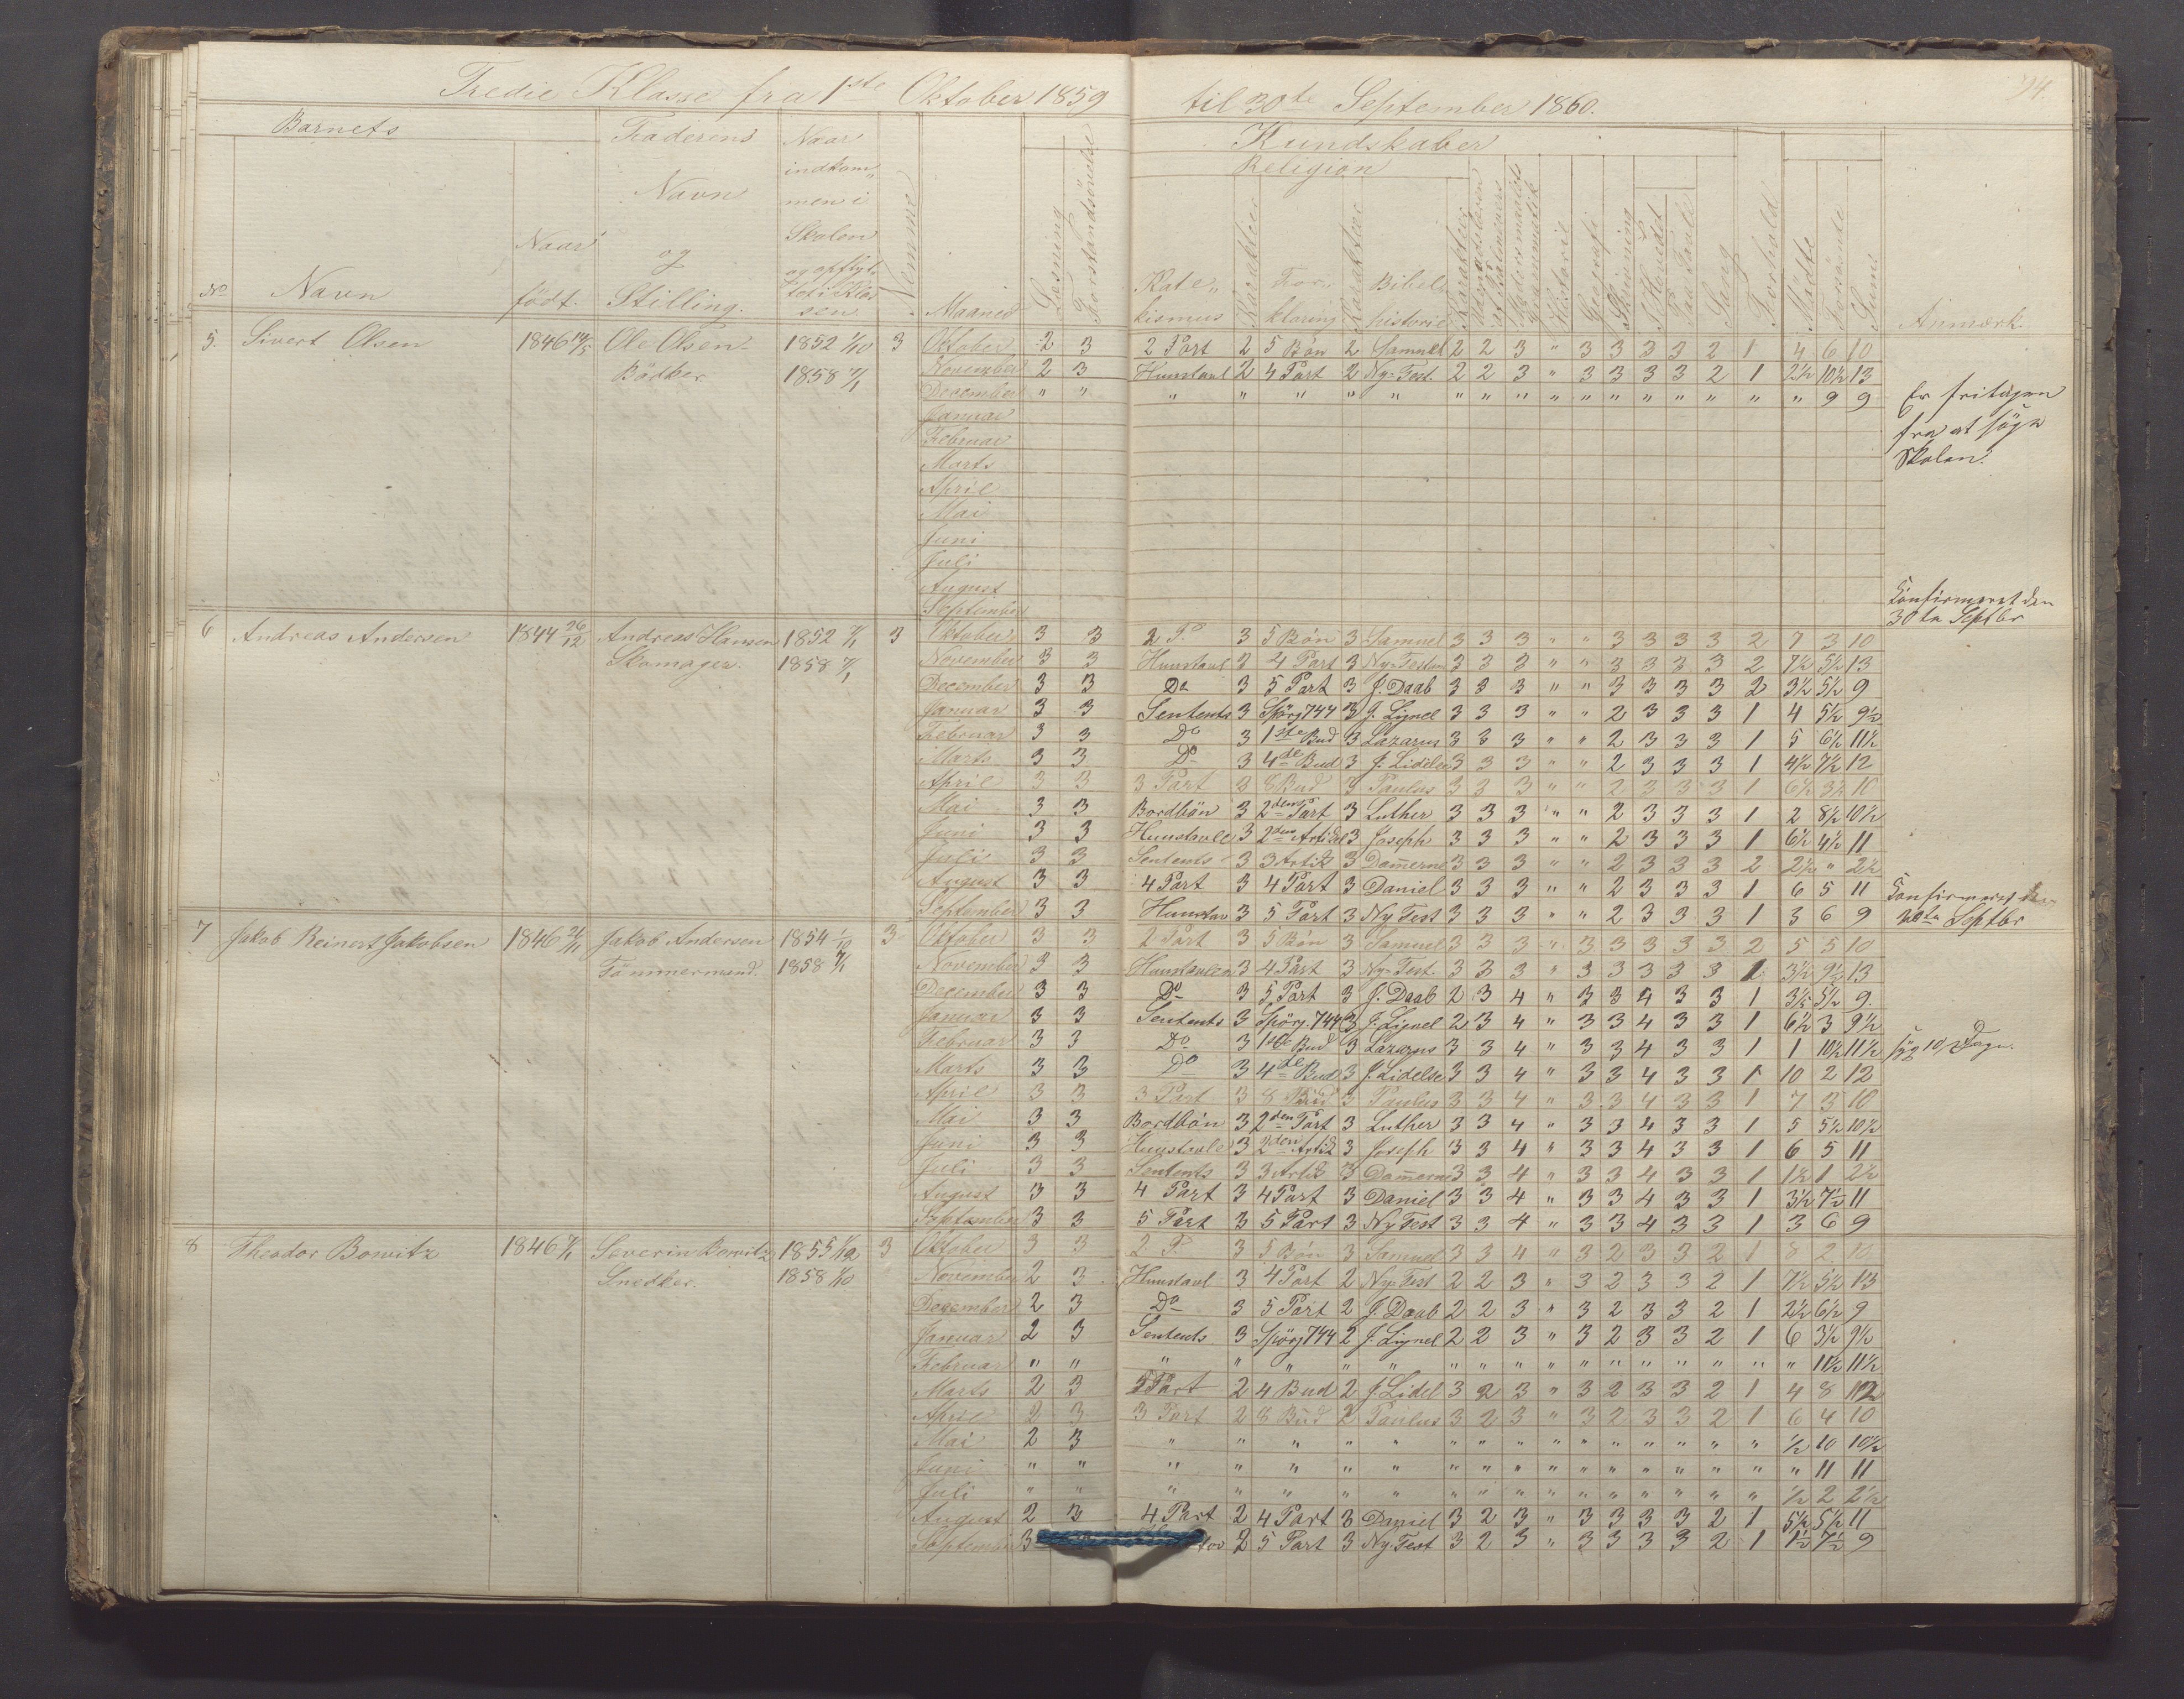 Tredie Klasse fra 1ste Oktober 1859 til 30te September 1860.
94.
Barnets Faderens Naar Kundskaber
Navn indkom„ Religion
men i
Naar og Skolen
No Navn født. Stilling. og opflyt„ Nemme Maaned Læsning Forstandsøvelse Kate„ Karakter For„ Karakter Bibel„ Karakter Udenadslæren af Psalmevers Modersmaalets Grammatik Historie Geografi Skrivning I Hovedet Paa Tavle Sang Forhold Mødte Forsømte Sum Anmærk.
tet i Klas kismus klaring historie
sen.
5. Sivert Olsen 1846 14/5 Ole Olsen 1852 1/10 3 Oktober 2 3 2 Part 2 5 Bøn 2 Samuel 2 2 3 " 3 3 3 3 2 1 4 6 10
Bödker 1858 7/1 November 2 3 Huustavl 2 4 Part 2 Ny-Test. 2 2 3 " 3 3 3 3 2 1 2½ 10½ 13
December " " " " " " " " " " " " " " " " " " 9 9 Er fritagen
Januar fra at søge
Februar Skolen.
Marts
April
Mai
Juni
Juli
August
September Konfirmeret den 30te Septbr
6 Andreas Andersen 1844 26/12 Andreas Hansen 1852 7/1 3 Oktober 3 3 2 P. 3 5 Bön 3 Samuel 3 3 3 " " 3 3 3 3 2 7 3 10
Skomager. 1858 7/1 November 3 3 Huustavl 3 4 Part 3 Ny-Testam 3 3 3 " " 3 3 3 3 2 7½ 5½ 13
December 3 3 Do 3 5 Part 3 J. Daab 3 3 3 " " 3 3 3 3 2 3½ 5½ 9
Januar 3 3 Sentents 3 Spörg 744 3 J. Lignel 3 3 3 " " 2 3 3 3 1 4 5½ 9½
Februar 3 3 Do 3 1ste Bud 3 Lazarus 3 3 3 " " 2 3 3 3 1 5 6½ 11½
Marts 3 3 Do 3 4de Bud 3 J. Lidelse 3 3 3 " " 2 3 3 3 1 4½ 7½ 12
April 3 3 3 Part 3 8 Bud 3 Paulus 3 3 3 " " 2 3 3 3 1 6½ 3½ 10
Mai 3 3 Bordbön 3 2den Part 3 Luther 3 3 3 " " 2 3 3 3 1 2 8½ 10½
Juni 3 3 Huustavle 3 2den Artikel 3 Joseph 3 3 3 " " 2 3 3 3 1 6½ 4½ 11
Juli 3 3 Sentents 3 3 Artik 3 Dommerne 3 3 3 " " 2 3 3 3 2 2½ " 2½
August 3 3 4 Part 3 4 Part 3 Daniel 3 3 3 " " 2 3 3 3 1 6 5 11
September 3 3 Huustav 3 5 Part 3 Ny Test 3 3 3 " " 2 3 3 3 1 3 6 9 Konfirmeret den 30te Septbr
7 Jakob Reinert Jakobsen 1846 26/11 Jakob Andersen 1854 1/10 3 Oktober 3 3 2 Part 3 5 Bön 3 Samuel 3 3 3 " 3 3 3 3 3 2 5 5 10
Tømmermand. 1858 7/1 November 3 3 Huustavlen 3 4 Part 3 Ny-Test. 3 3 3 " 3 3 3 3 3 1 3½ 9½ 13
December 3 3 Do 3 5 Part 3 J. Daab 2 3 4 " 3 3 4 3 3 1 3½ 5½ 9
Januar 3 3 Sentents 3 Spörg. 744 3 J. Lignel 2 3 4 " 3 3 4 3 3 1 6½ 3 9½
Februar 3 3 Do 3 1ste Bud 3 Lazarus 3 3 4 " 3 3 4 3 3 1 1 10½ 11½ syg 10 Dage.
Marts 3 3 Do 3 4de Bud 3 J. Lidelse 3 3 4 " 3 3 4 3 3 1 10 2 12
April 3 3 3 Part 3 8 Bud 3 Paulus 3 3 4 " 3 3 4 3 3 1 7 3 10
Mai 3 3 Bordbön 3 2den Part 3 Luther 3 3 4 " 3 3 4 3 3 1 5 5½ 10½
Juni 3 3 Huustavle 3 2den Artik 3 Joseph 3 3 4 " 3 3 4 3 3 1 6 5 11
Juli 3 3 Sentents 3 3 Artik 3 Dommerne 3 3 4 " 3 3 4 3 3 1 1½ 1 2½
August 3 3 4 Part 3 4 Part 3 Daniel 3 3 4 " 3 3 4 3 3 1 3½ 7½ 11
September 3 3 5 Part 3 5 Part 3 Ny Test 3 3 4 " 3 3 4 3 3 1 3 6 9
8 Theodor Bowitz 1846 7/11 Severin Bowitz 1855 1/10 3 Oktober 3 3 2. P. 3 5 Bön 3 Samuel 3 3 4 " 3 2 3 3 2 1 8 2 10
Snedker. 1858 1/10 November 2 3 Huustavl 3 4 Part 2 Ny-Test 2 2 3 " 3 2 3 3 2 1 7½ 5½ 13
December 2 3 Do 3 5 Part 2 J. Daab 2 2 3 " 3 2 3 3 2 1 2½ 6½ 9
Januar 2 3 Sentents 3 Spörg 744 2 J. Lignel 2 2 3 " 3 2 3 3 2 1 6 3½ 9½
Februar " " " " " " " " " " " " " " " " " " 11½ 11½
Marts 2 3 5 Part 2 4 Bud 2 J. Lidel 3 2 3 " 3 2 3 3 2 1 4 8 12
April 2 3 3 Part 2 8 Bud 2 Paulus 3 2 3 " 3 2 3 3 2 1 6 4 10
Mai 2 3 " " " " " " " " " " " " " " " ½ 10 10½
Juni " " " " " " " " " " " " " " " " " " 11 11
Juli " " " " " " " " " " " " " " " " " ½ 2 2½
August 2 3 4 Part 2 4 Part 3 Daniel 3 2 3 " 3 3 3 3 2 1 5½ 5½ 11
September 3 2 5 Part 3 Ny Test 3 2 3 " 3 3 3 3 2 1 1½ 7½ 9